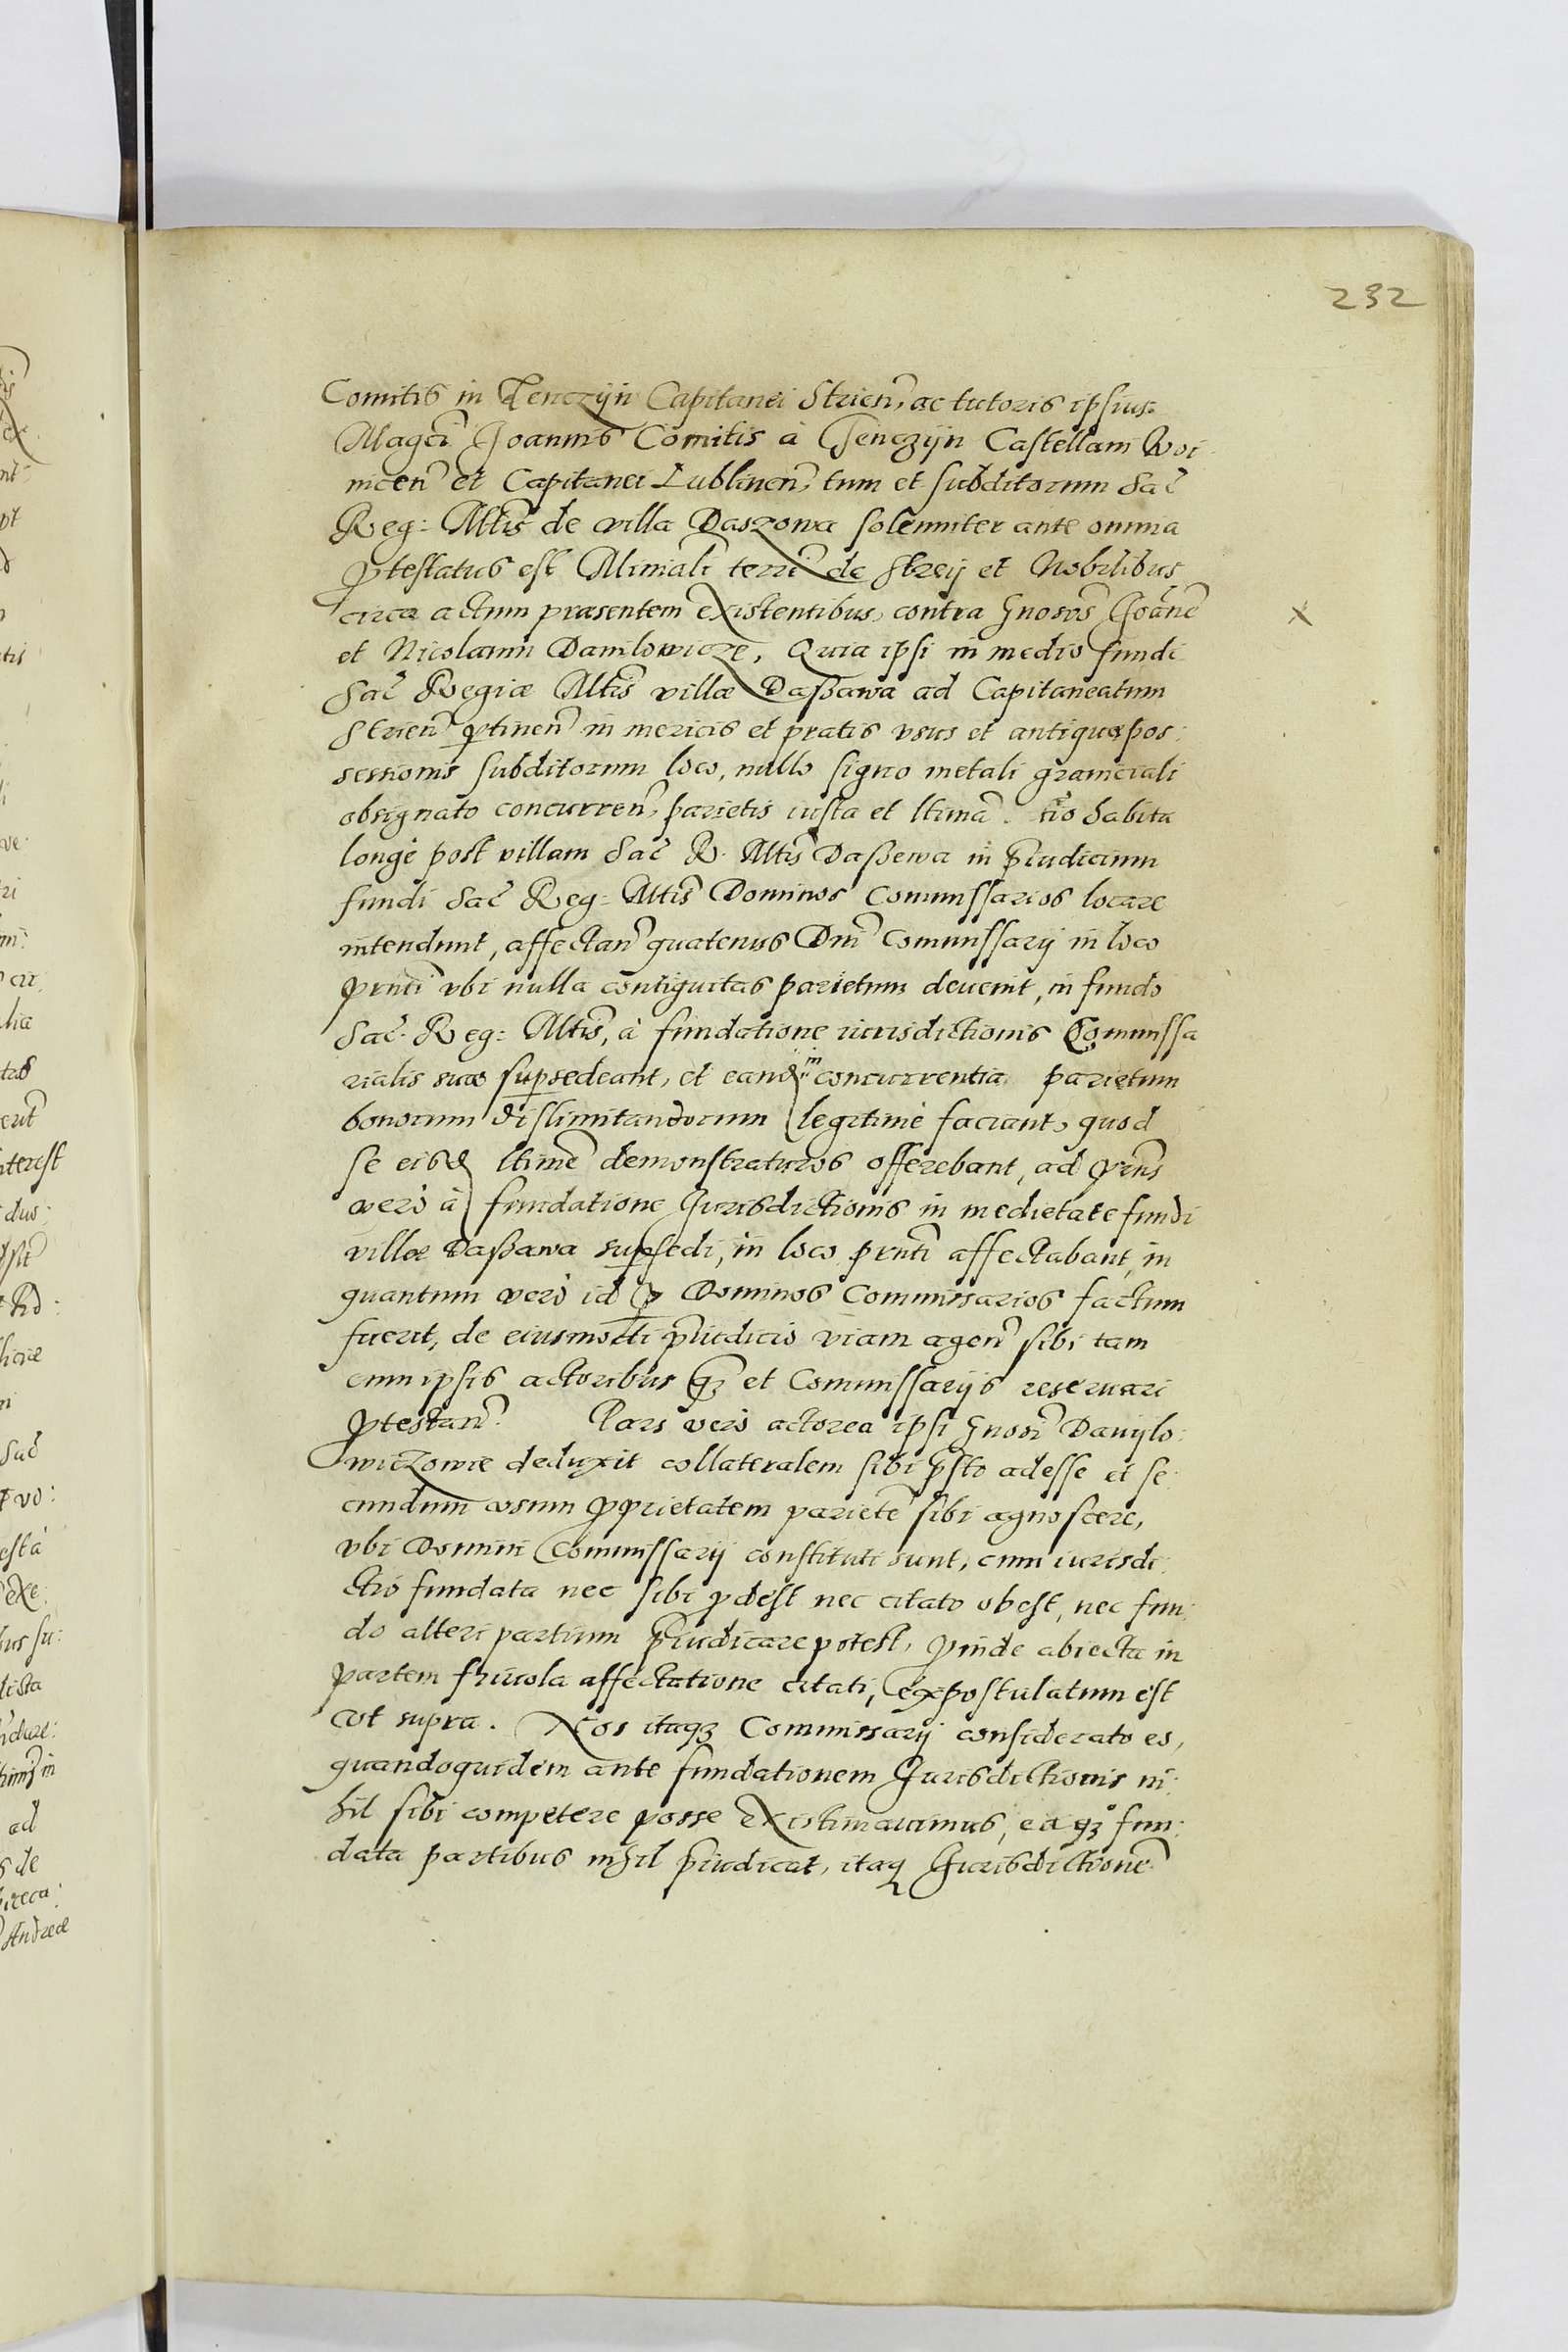 232
Comitis in Tenczyn Capitanei Strien, ac tutoris ipsius
Magci Joannis Comitis à Tenczÿn Castellani Woi
nicen et Capitanei Lublinen, tum et subditorum Sac
Reg: Mttis de villa Daszowa solenniter ante omnia
ptestatus est Miniali terri de Strÿ et Nobilibus
circa actum præsentem existentibus, contra Gnosos Joãnẽ
et Nicolaum Danilowicze, Quia ipsi in medio fundi
Sac Regiæ Mttis villæ Daßawa ad Capitaneatum
Strien ptinen in mericis et pratis vsus et antiquæ pos:
sessionis subditorum loco, nullo signo metali graniciali
obsignato concurren, parietis iusta et ltima tio habita
longè post villam Sac R. Mttis Daßewa in piudicium
fundi Sac Reg: Mttis Dominos Comissarios locare
intendunt, affectan quatenus Dni Comissarij in loco
pnti vbi nulla contiguitas parietum deuenit, in fundo
Sac. Reg: Mttis, à fundatione iurisdictionis Comissa
rialis suæ supsedeant, et eand m concurrentia parietum
bonorum dislimitandorum legitimè faciant, quod
se eisd ltimè demonstraturos offerebant, ad pñs
verò à fundatione Jurisdictionis in medietate fundi
villæ Daßawa supsedi, in loco pñti affectabant, in
quantum verò id p Dominos Commissarios factum
fuerit, de eiusmodi piudicio viam agen sibi tam
cum ipsis actoribus qz et Comissarijs reseruari
ptestan. Pars verò actorea ipsi Gnosi Danÿlo:
wiczowie deduxit collateralem sibi psto adesse et se:
cundum vsum pprietatem parietẽ sibi agnoscere,
vbi Domini Comissarij constituti sunt, cum iurisdi:
ctio fundata nec sibi pdest nec citato obest, nec fun:
do alteri partium piudicare potest, pinde abiecta in
partem friuola affectatione citati, expostulatum est
vt supra. Nos itaqz Commissarij considerato eo,
quandoquidem ante fundationem Jurisdictionis ni:
hil sibi competere posse existimauimus, eaqz fun:
data partibus nihil piudicat, itaq Jurisdictionẽ